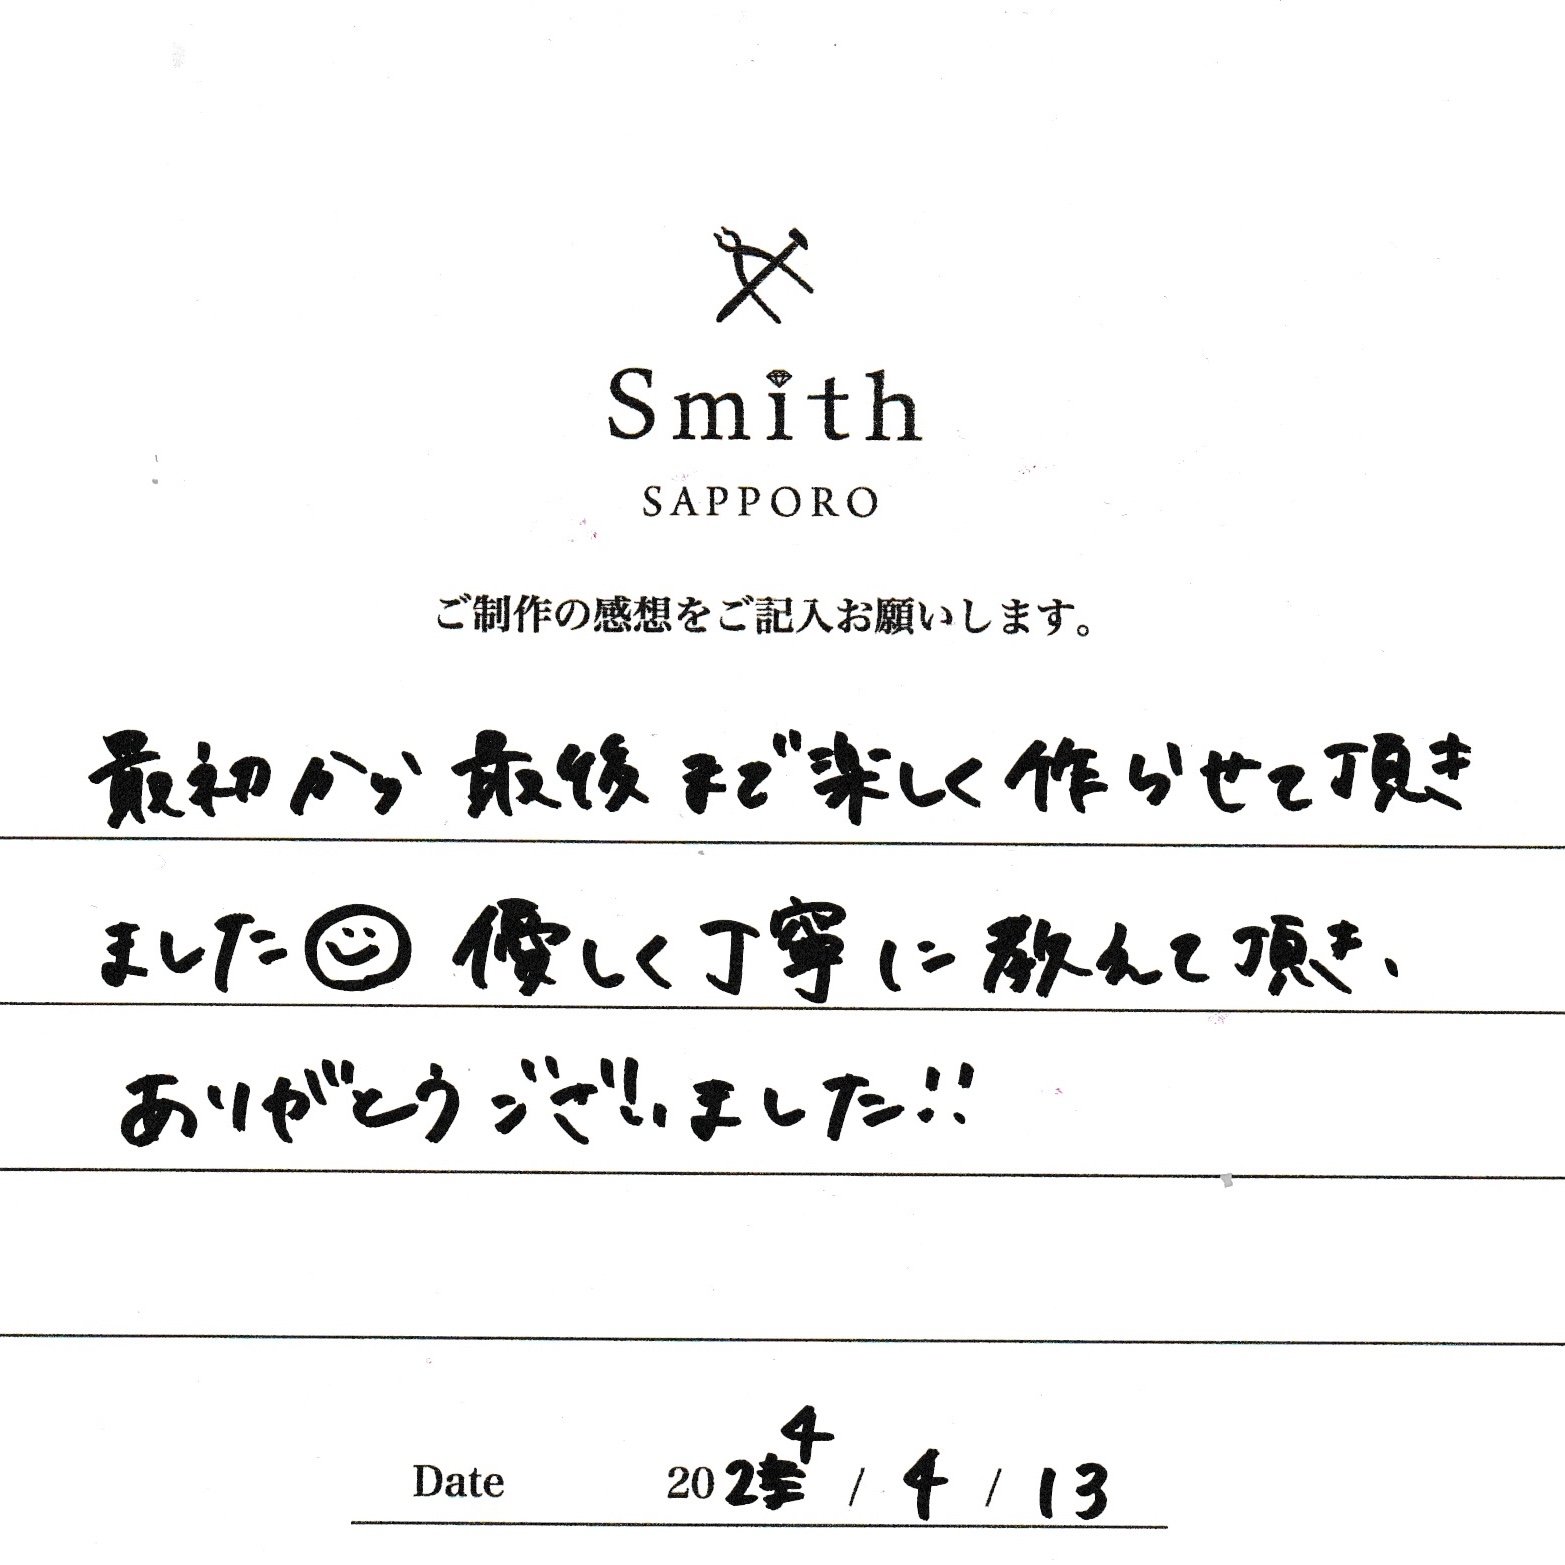 Smith
SAPPORO
ご制作の感想をご記入お願いします。
最初から最後まで楽しく作らせて頂き
ました☺優しく丁寧に教えて頂き、
ありがとうございました!!
Date 2024 / 4 / 13